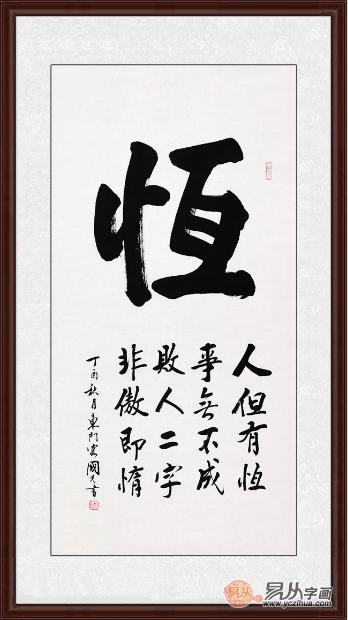 恆
人但有恆
事無不成
敗人二字
非傲即惰
丁酉秋月東門國書
易从字画
www.yczihua.com